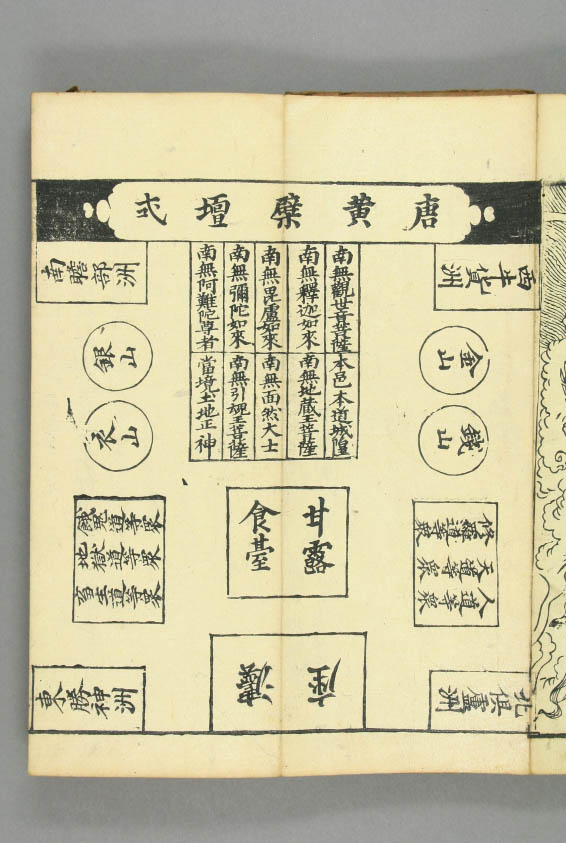 唐黄檗壇式
西牛貨洲
南無觀世音菩薩
本邑本道城隍
南無釋迦如來
南無地蔵王菩薩
南無毘盧如來
南無面然大士
南無彌陀如來
南無引魂王菩薩
南無阿難陀尊者
當境土地正神
南瞻部洲
金山
銀山
銭山
衣山
甘露
食臺
修羅道等衆
天道等衆
人道等衆
餓鬼道等衆
地獄道等衆
畜生道等衆
北俱盧洲
東勝神洲